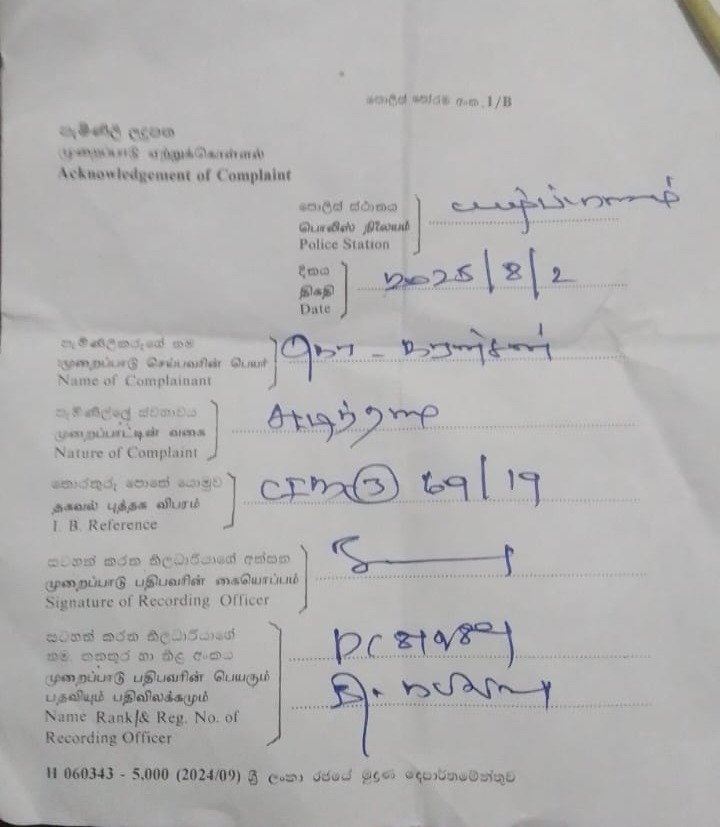 පොලිස් පෝරම අංක.1/B
පැමිණිලි ලදුපත
முறைப்பாடு ஏற்றுக்கொள்ளல்
Acknowledgement of Complaint
පොලිස් ස්ථානය
பொலிஸ் நிலையம்
Police Station
யாழ்ப்பாணம்
දිනය
திகதி
Date
2025/8/2
පැමිණිලිකරුගේ නම
முறைப்பாடு செய்பவரின் பெயர்
Name of Complainant
පැමිණිල්ලේ ස්වභාවය
முறைப்பாட்டின் வகை
Nature of Complaint
அடிந்தமை
තොරතුරු පොතේ යොමුව
தகவல் புத்தக விபரம்
I. B. Reference
69/19
සටහන් කරන නිලධාරියාගේ අත්සන
முறைப்பாடு பதிபவரின் கையொப்பம்
Signature of Recording Officer
සටහන් කරන නිලධාරියාගේ
නම, තනතුර හා නිල අංකය
முறைப்பாடு பதிபவரின் பெயரும்
பதவியும் பதிவிலக்கமும்
Name Rank/& Reg. No. of
Recording Officer
H 060343 - 5,000 (2024/09) ශ්‍රී ලංකා රජයේ මුද්‍රණ දෙපාර්තමේන්තුව